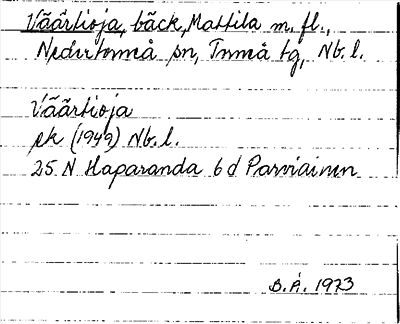 Väärtioja, bäck, Mattila m. fl.,
Nedertorneå sn, Torneå tg, Nb. l.
Väärtioja
ek (1949) Nb. l.
25 N Haparanda 6 d Parviainen
B. Å. 1973